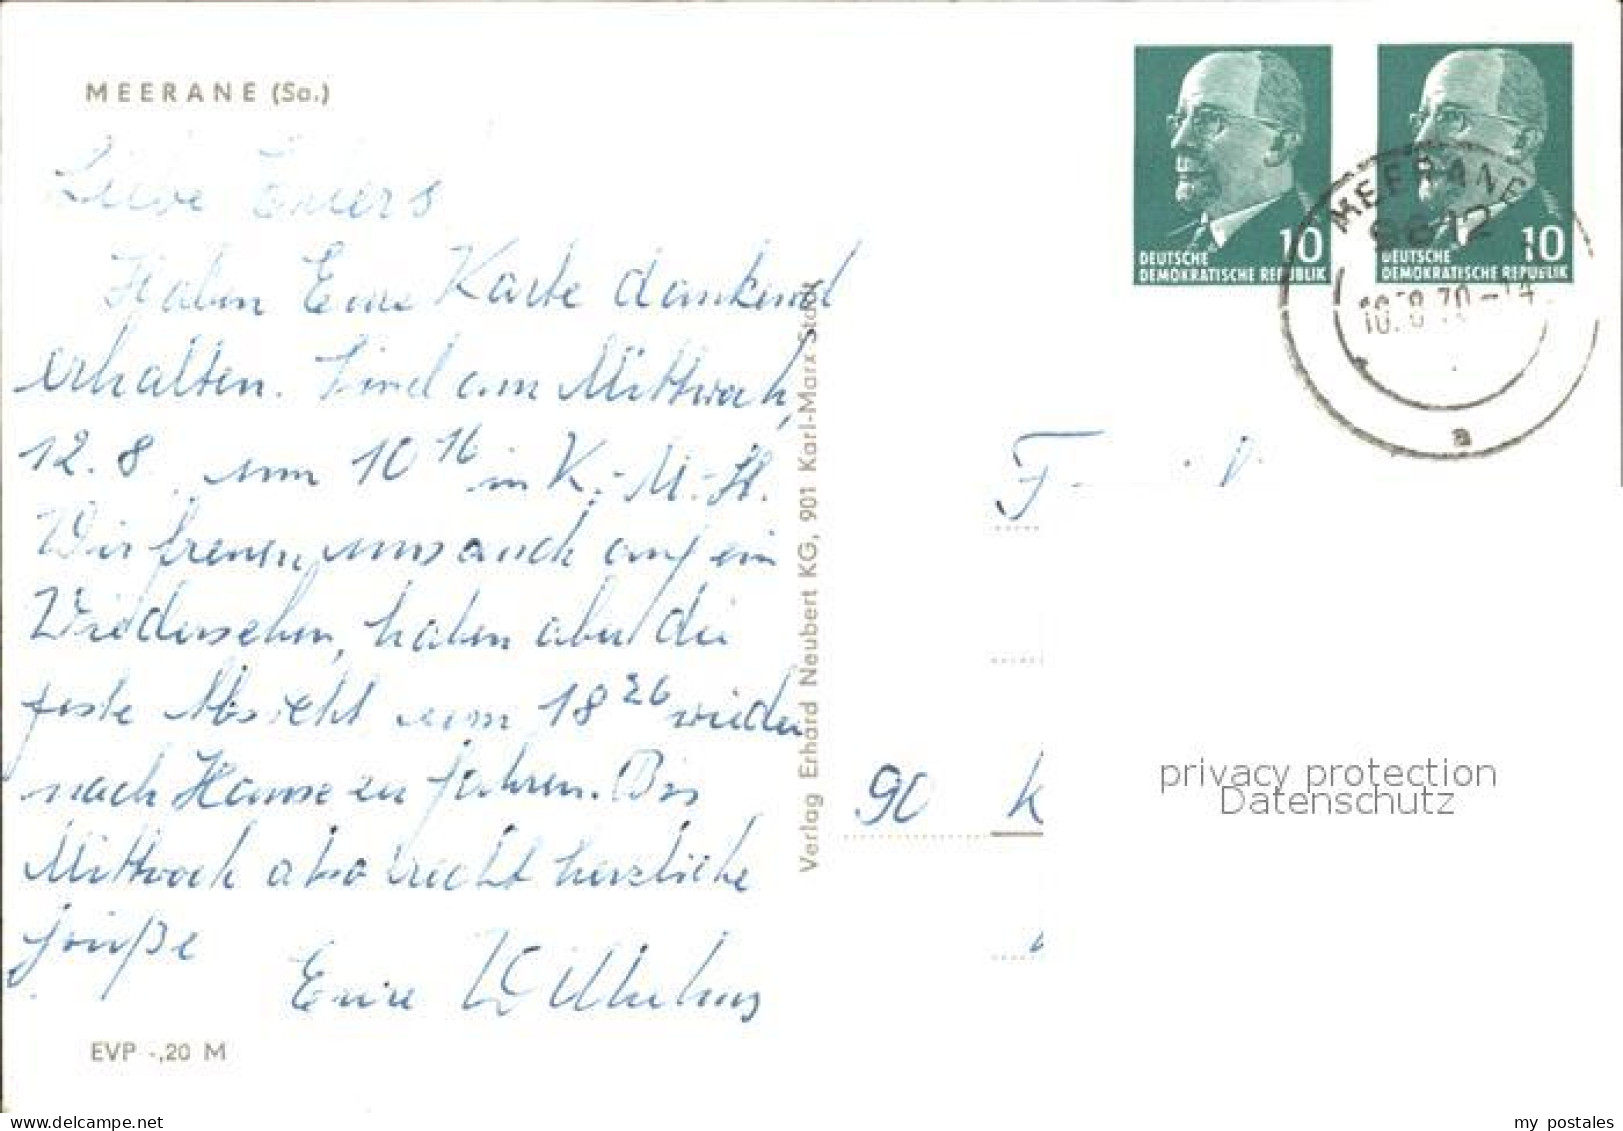 MEERANE (Sa.)
Liebe Ehlers
Haben Eure Karte dankend
erhalten. Sind am Mittwoch,
12.8. um 10 16 in K.-M.-St.
Wir freuen uns auch auf ein
Wiedersehen, haben aber die
feste Absicht um 18 26 wieder
nach Hause zu fahren. Bis
Mittwoch also recht herzliche
Grüße
Eure Wilhelms
EVP -,20 M
Verlag Erhard Neubert KG, 901 Karl-Marx-Stadt
DEUTSCHE
DEMOKRATISCHE REPUBLIK
10
DEUTSCHE
DEMOKRATISCHE REPUBLIK
10
MEERANE
9612
a
90 K
privacy protection
Datenschutz
ansichtskarten-center.de
my postales